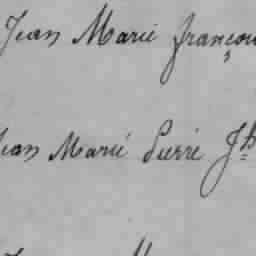 Jean Marie françou
Jean Marie Pierre Jh